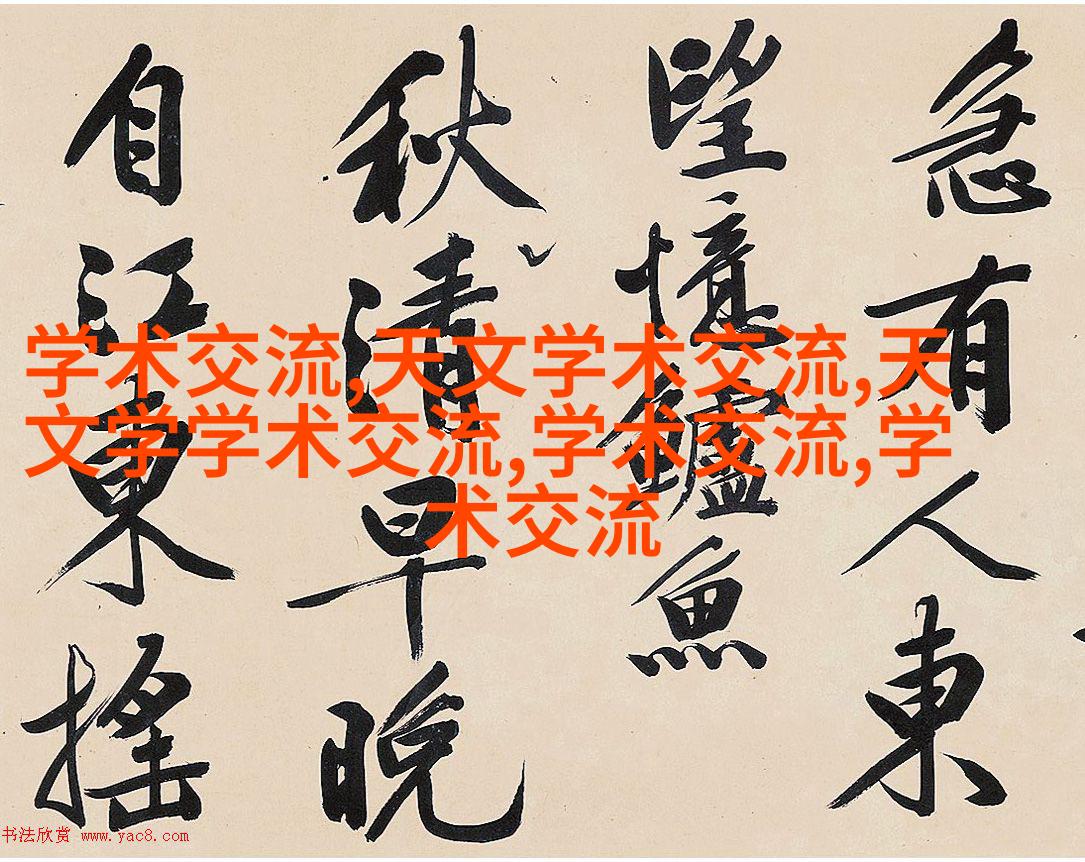 急有人東
望憶鱸魚
秋清早晚
自江東搖
学术交流,天文学术交流,天
文学学术交流,学术交流,学
术交流
书法欣赏 www.yac8.com